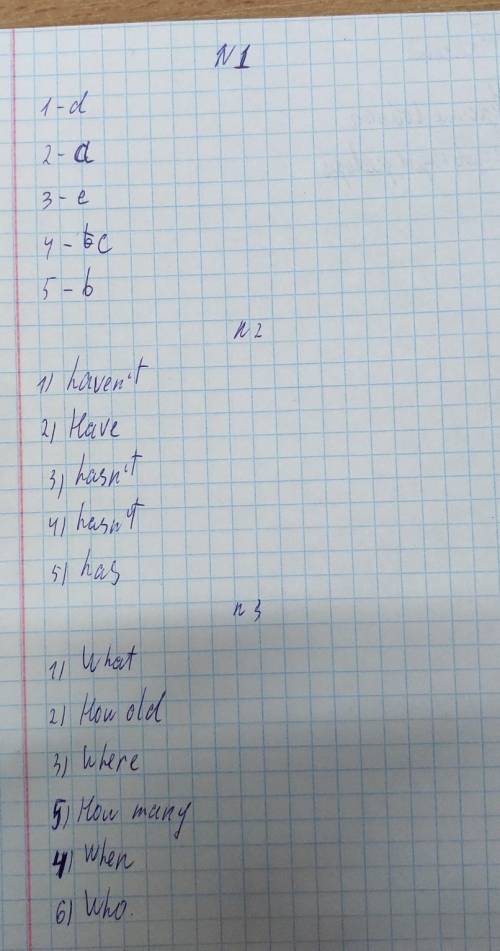 N 1
1 - d
2 - a
3 - e
4 - c
5 - b
n 2
1) haven't
2) Have
3) hasn't
4) hasn't
5) has
n 3
1) What
2) How old
3) Where
5) How many
4) When
6) Who.